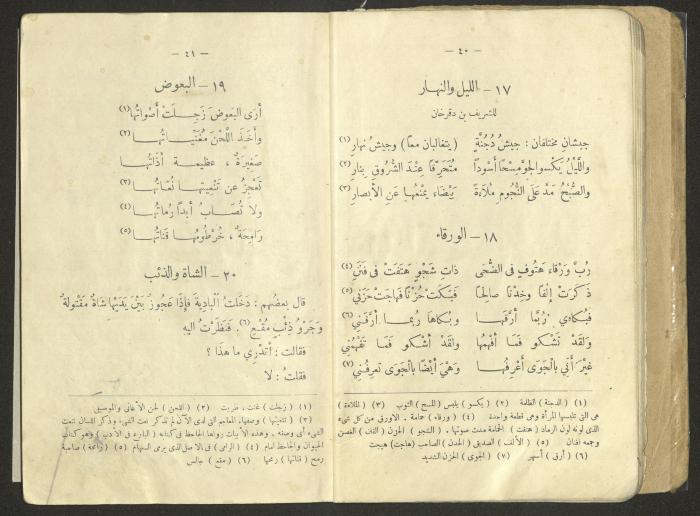 — ٤٠ —
١٧ – الليل والنهار
للشريف بن دفترخان
جيشانِ مختلفان : جيشُ دُجُنَّةٍ (يتغالبان معاً) وجيشُ نهارِ (١)
واللَّيْلُ يَكْسو الجوَّ مِسْحاً أَسْوَداً مُتَحَرِّقاً عِنْدَ الشُّروقِ بِنارِ (٢)
والصُّبْحُ مَدَّ عَلَى النُّجومِ مُلاءَةً بَيْضاءَ يَمْنَعُها عَنِ الأَبصارِ (٣)
١٨ – الورقاء
رُبَّ وَرْقاءَ هَتُوفٍ في الضُّحَى ذاتِ شَجْوٍ هَتَفَتْ في فَنَنِ (٤)
ذَكَرَتْ إِلْفاً وخِدْناً صالِحاً فَبَكَتْ حُزْناً فَهاجَتْ حَزَنِي (٥)
فَبُكاءِي رُبَّما أَرَّقَها وبُكاها رُبما أَرَّقَنِي (٦)
ولَقَدْ تَشْكو فَما أَفْهَمُها ولَقَدْ أَشْكو فَما تَفْهَمُنِي
غَيْرَ أَنِّي بالْجَوَى أَعْرِفُها وَهْيَ أَيْضاً بالْجَوَى تَعْرِفُنِي (٧)
(١) (الدجنة) الظلمة (٢) (يكسو) يلبس (المسح) الثوب (٣) (الملاءة)
هى التى تلبسها المرأة وهى قطعة واحدة (٤) (ورقاء) حمامة . الاورق من كل شىء
الذى لونه لون الرماد (هتفت) الحمامة مدت صوتها . (الشجو) الحزن (الفنن) الغصن
وجمعه افنان (٥) (الألف) الصديق (الخدن) الصاحب (هاجت) هيجت
(٦) (أرق) أسهر (٧) (الجوى) الحزن الشديد
— ٤١ —
١٩ – البعوض
أَرَى البَعوضَ زَجِلَتْ أَصْواتُها (١)
وأَخَذَ اللَّحْنَ مُغَنِّياتُها (٢)
صَغِيرَةٌ ، عظيمة أَذاتُها
تَعْجِزُ عن تَنْعِيتِها نُعّاتُها (٣)
ولا تُصَابُ أبداً رُماتُها (٤)
رَامِحَةٌ ، خُرْطُومُها قَناتُها (٥)
٢٠ – الشاة والذئب
قال بعضُهم : دَخَلتُ الْبادِيةَ فإِذَا عَجوزٌ بَيْنَ يَدَيْها شاةٌ مَقْتولةٌ
وَجَرْوُ ذِئْبٍ مُقْعٍ (٦) ، فَنَظَرْتُ اليه
فقالت : أَتَدْرِي ما هذا ؟
فقلتُ : لا
(١) (زجلت) غنت ، طربت (٢) (اللحن) لحن الأغانى والموسيقى
(٣) (تنعيتها) وصفها.
الحيوان والجاحظ امام (٤) (الرامى) فى الاصل الذى يرمى السهام (٥) (رامحة) صاحبة
رمح (قناتها) رمحها (٦) (مقع) جالس